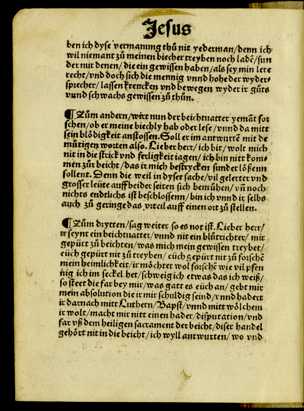 Jesus
ben ich dyse vermanung thů nit yederman/denn ich
wil niemant zu meinen biecher treyben noch ladē/sun
der mit denen/die ein gewissen haben/als sey min lere
recht/vnd doch sich die mennig vnnd hohe der wyder-
sprecher/lassen krencken vnd bewegen wyder ir gůts
vnd schwachs gewissen zu thůn.
¶ Zům andern/wirt nun der beichtuatter yemāt for
schen/ob er meine biechly hab oder lese/vnnd da mitt
sein blödigkeit anstossen. Soll er im antwurtē mit de
můtigen worten also. Lieber herr/ich bit/wolt mich
nit in die strick vnd ferligkeit iagen/ich bin nitt kom-
men zůr beicht/das ir mich bestrycken sunder lösen
sollent. Denn die weil in dyser sache/vil gelerter vnd
grosser leüte auff beider seiten sich bemühen/vñ noch
nichts endtlichs ist beschlossenn/bin ich vnnd ir selbs
auch zů geringe das vrteil auff einen ort zů stellen.
¶ Zům drytten/sag weiter so es not ist. Lieber herr/
ir seynt ein beichtuatter/vnnd nit ein blůtrichter/mir
gepürt zů beichten/was mich mein gewissen treybet/
euch gepürt nit zů treyben/eüch gepürt nit zů forschē
mein heimlickeit/ir möchtet wol forschē wie vil pfen
nig ich im seckel het/schweig ich etwas das ich weiß/
so steet die far bey mir/was gatt es eüch an/gebt mir
mein absolution die ir mir schuldig seind/vnnd hadert
ir darnach mitt Luthern/Bapst/vnnd mitt wölchem
ir wolt/macht mir nitt einen hader/disputation/vnd
far vß dem heiligen sacrament der beicht/diser handel
gehört nit in die beicht/ich wyll antwurten/wo vnd